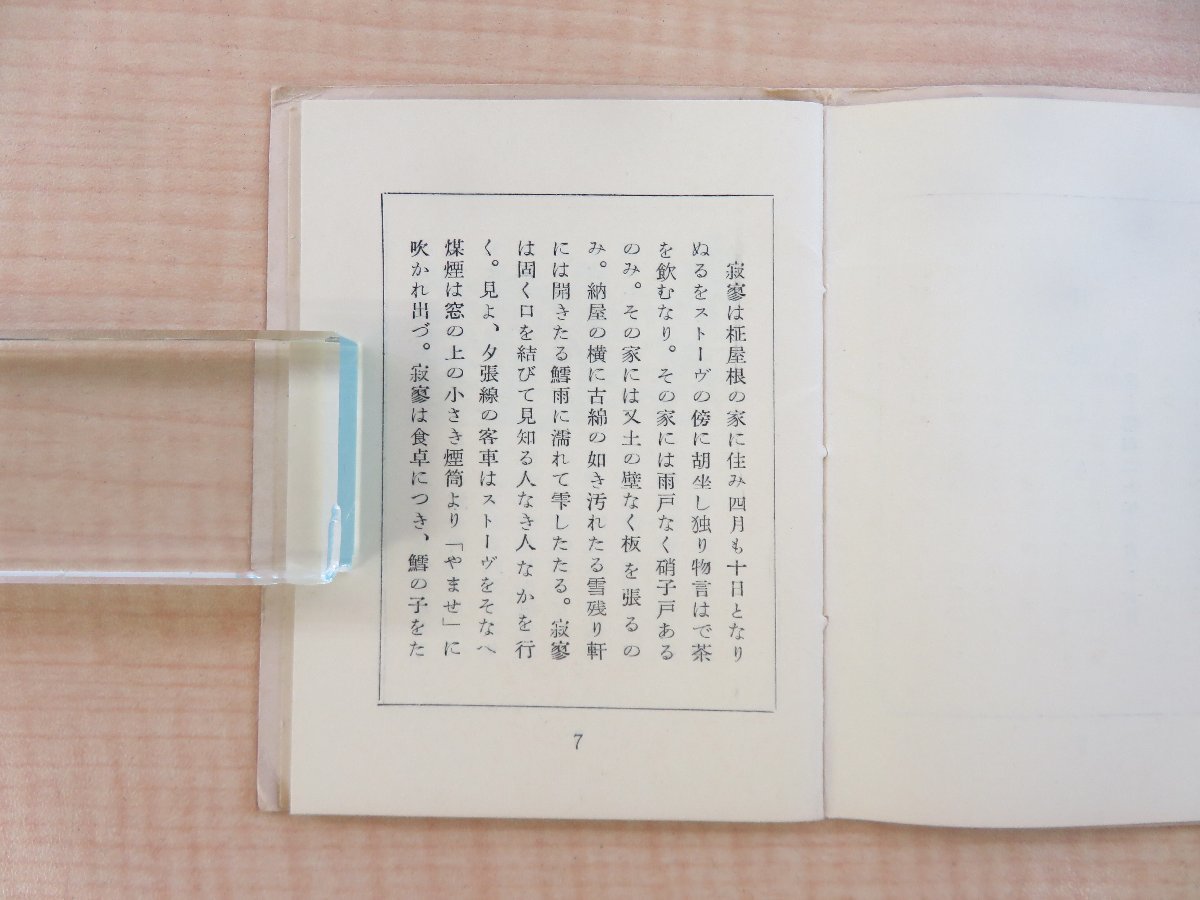 寂寥は柾屋根の家に住み四月も十日となり
ぬるをストーヴの傍に胡坐し独り物言はで茶
を飲むなり。その家には雨戸なく硝子戸ある
のみ。その家には又土の壁なく板を張るの
み。納屋の横に古綿の如き汚れたる雪残り軒
には開きたる鱈雨に濡れて雫したたる。寂寥
は固く口を結びて見知る人なき人なかを行
く。見よ、夕張線の客車はストーヴをそなへ
煤煙は窓の上の小さき煙筒より「やませ」に
吹かれ出づ。寂寥は食卓につき、鱈の子をた
7